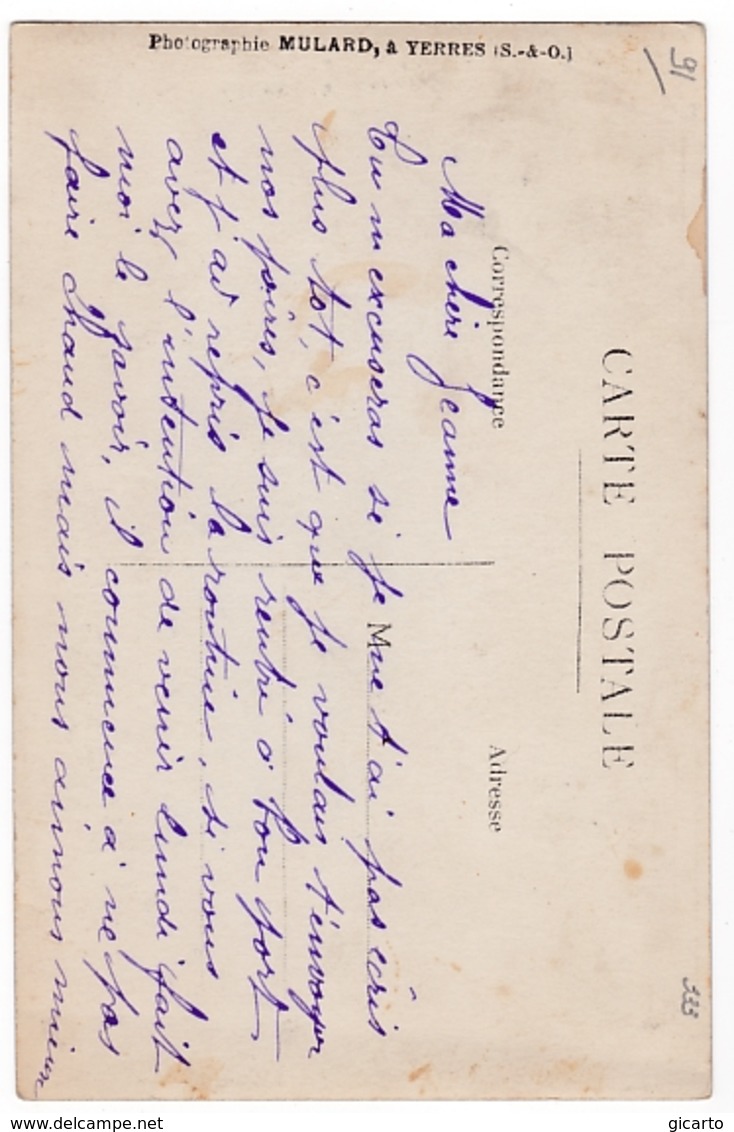 Photographie MULARD, à YERRES (S.-&-O.)
91
CARTE POSTALE
Correspondance
Adresse
M
Ma chère Jeanne
Tu m'excuseras si je ne t'ai pas écris
plus tôt, c'est que je voulais t'envoyer
nos poires, je suis rentré à bon port
et j'ai repris la routine, si vous
avez l'intention de venir lundi fait
moi le savoir, il commence à ne pas
faire chaud mais nous aimons mieux
333
delcampe.net
gicarto